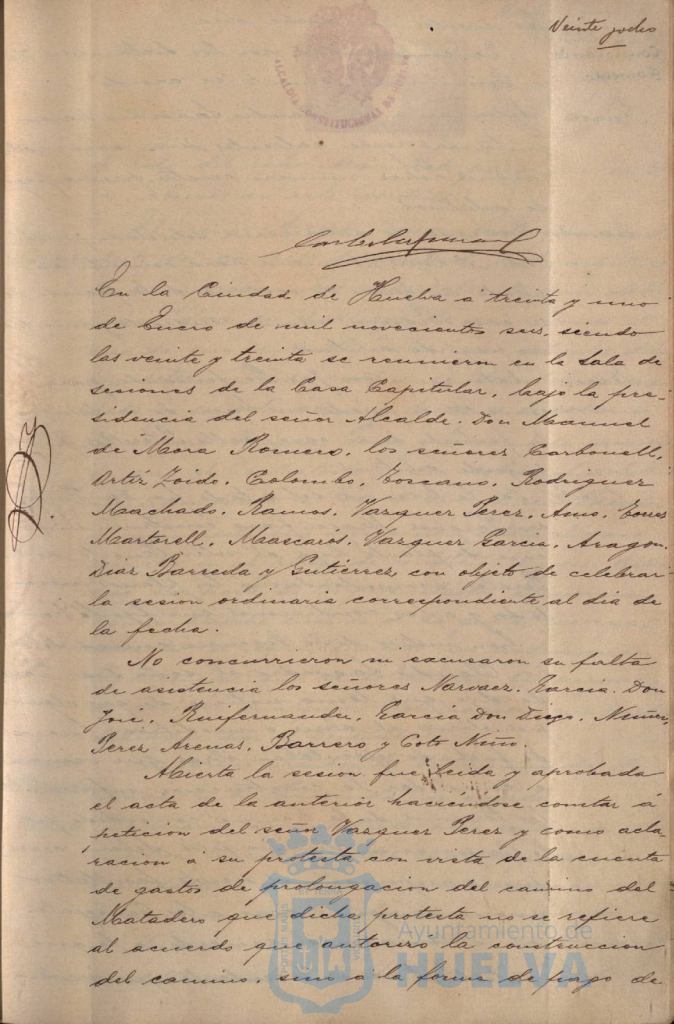 Veinte y ocho
ALCALDIA CONSTITUCIONAL DE HUELVA
En la Ciudad de Huelva á treinta y uno
de Enero de mil novecientos seis, siendo
las veinte y treinta se reunieron en la Sala de
sesiones de la Casa Capitular, bajo la pre-
sidencia del señor Alcalde. Don Manuel
de Mora Romero, los señores Carbonell,
Ortiz Zoido, Colombo, Toscano, Rodriguez
Machado, Ramos, Vazquez Perez, Amo, Torres
Martorell, Mascarós, Vazquez Garcia, Aragon,
Diaz Barreda y Gutiérrez, con objeto de celebrar
la sesion ordinaria correspondiente al dia de
la fecha.
No concurrieron ni excusaron su falta
de asistencia los señores Narvaez, Garcia Don
José, Ruifernandez, Garcia Don Diego, Nuñez
Perez Arenas, Barrero y Coto Niño.
Abierta la sesion fue leida y aprobada
el acta de la anterior haciéndose constar á
peticion del señor Vazquez Perez y como acla-
racion á su protesta con vista de la cuenta
de gastos de prolongacion del camino del
Matadero que dicha protesta no se refiere
al acuerdo que autorizo la construccion
del camino, sino á la forma de pago de
Ayuntamiento de
HUELVA